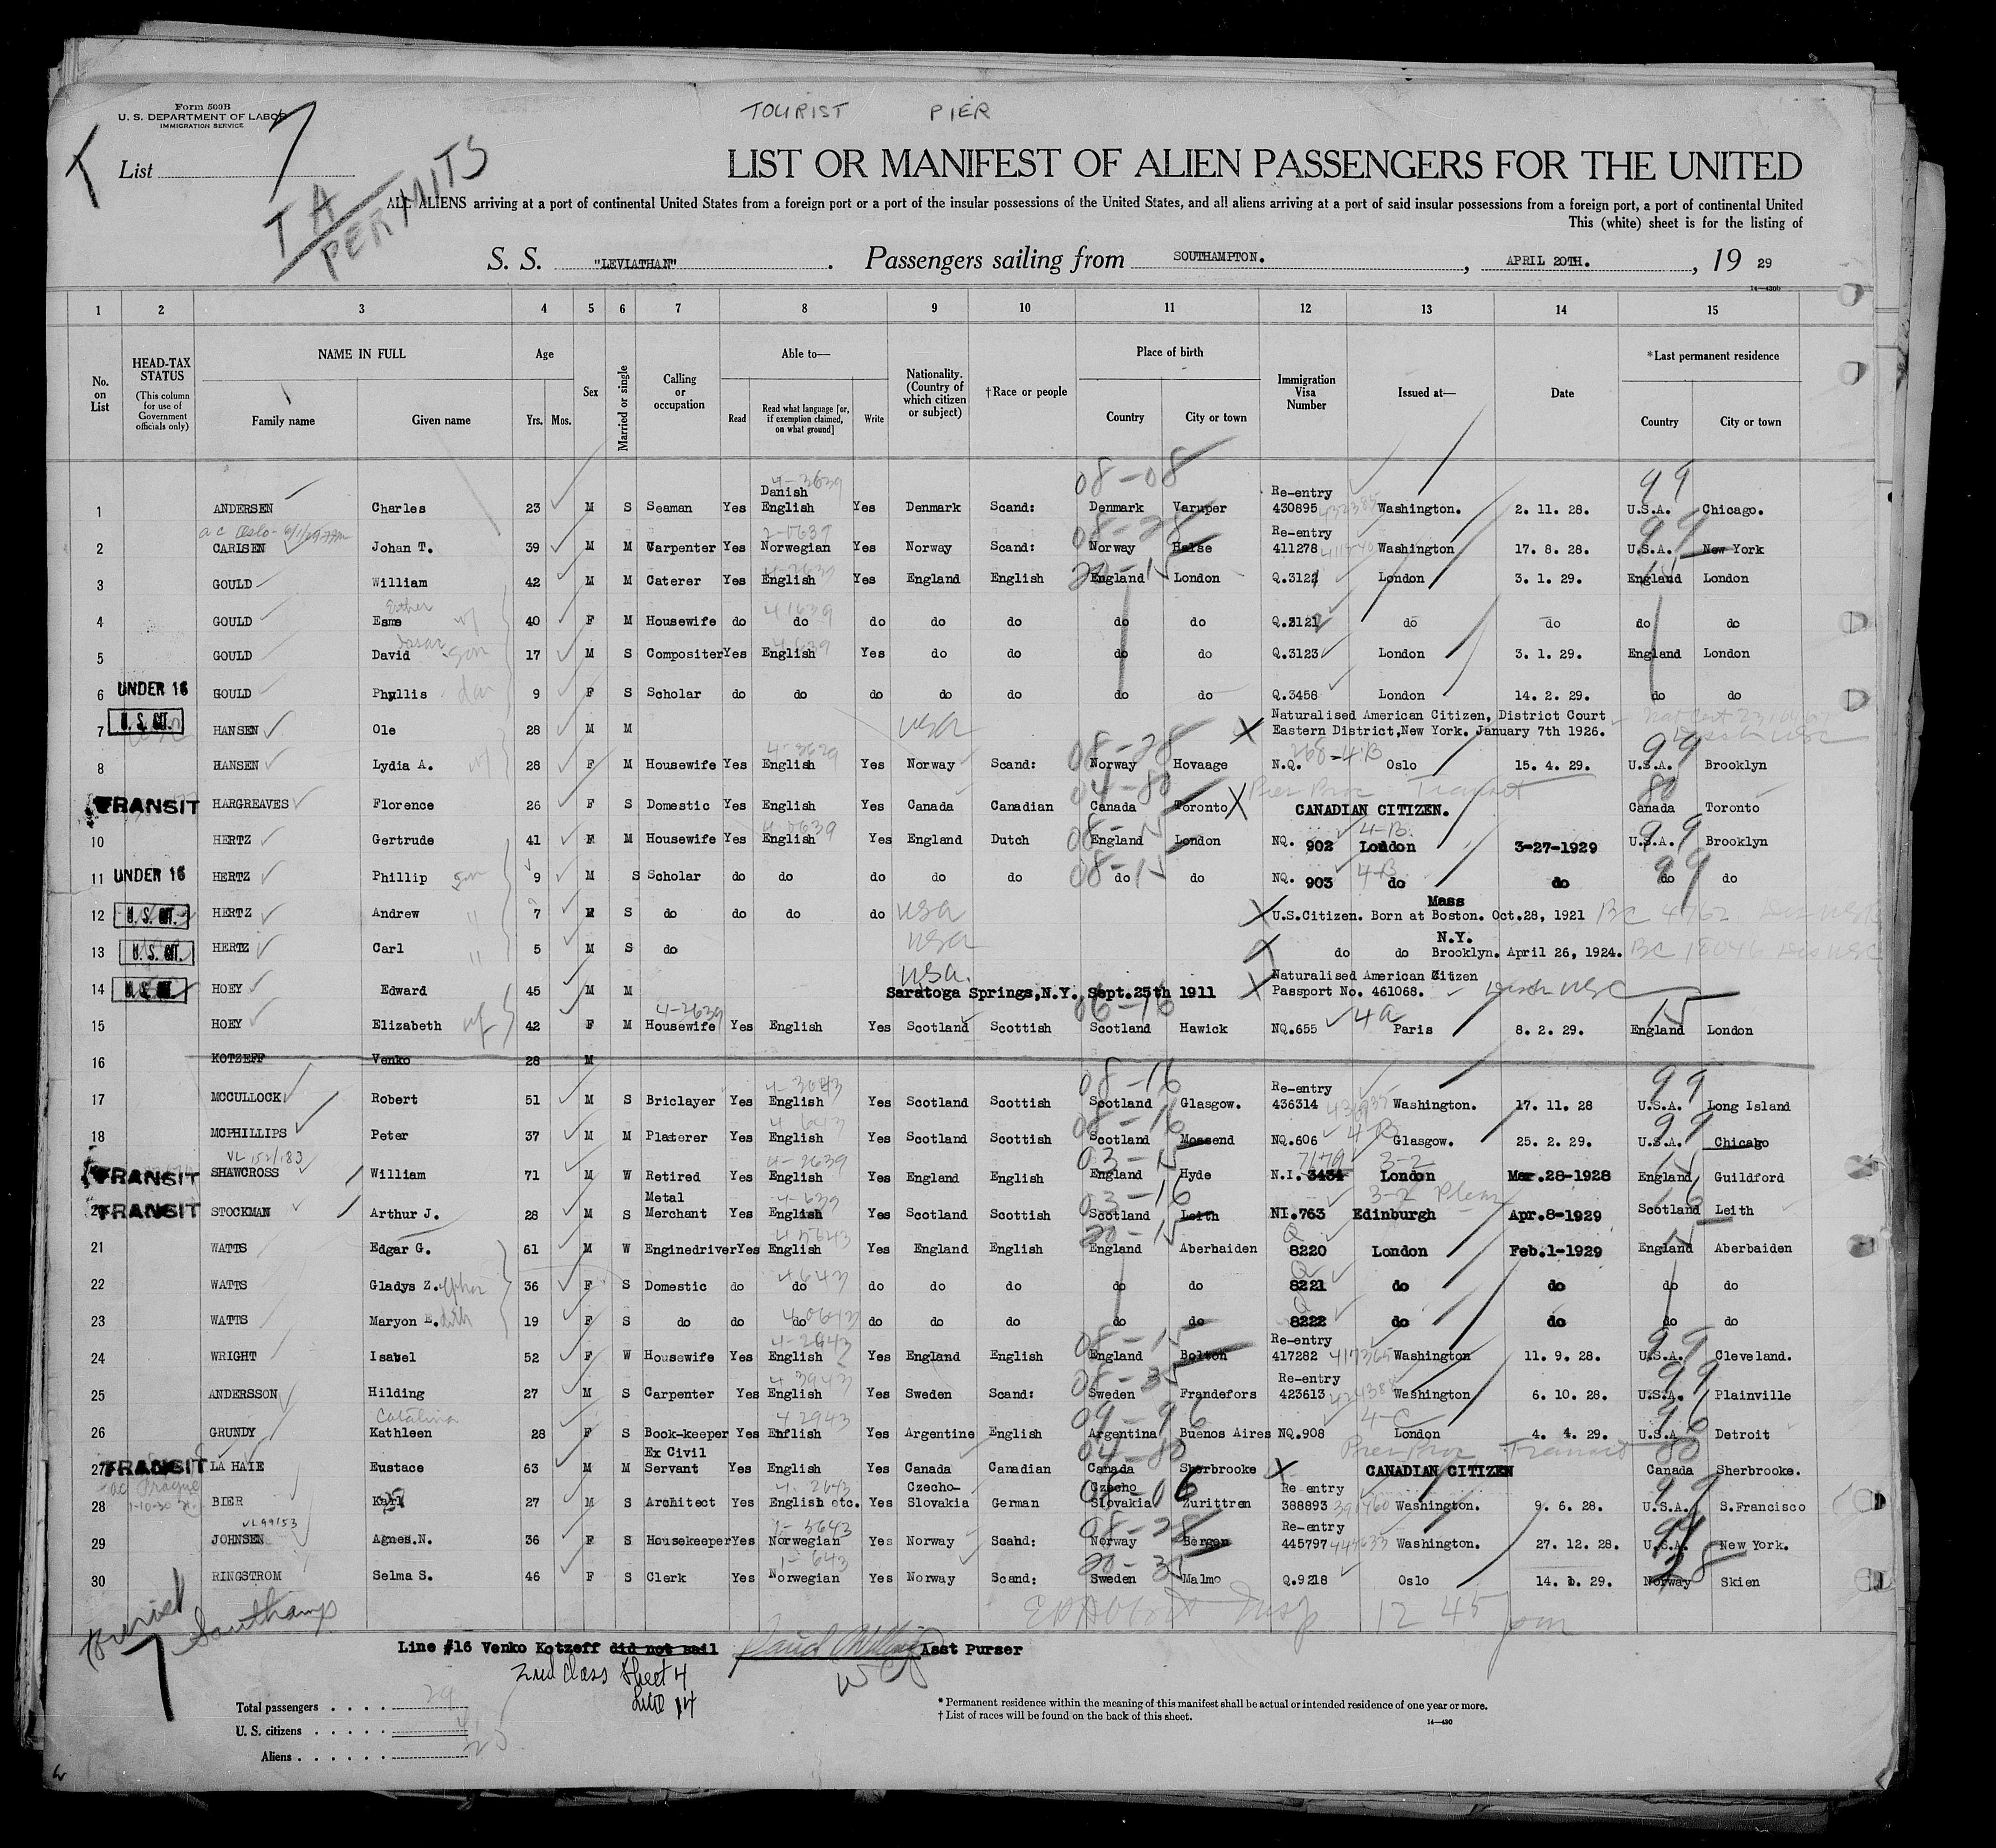 TOURIST PIER
Form 500B
U. S. DEPARTMENT OF LABOR
IMMIGRATION SERVICE
List 7
TA
PERMITS
LIST OR MANIFEST OF ALIEN PASSENGERS FOR THE UNITED
ALL ALIENS arriving at a port of continental United States from a foreign port or a port of the insular possessions of the United States, and all aliens arriving at a port of said insular possessions from a foreign port, a port of continental United
This (white) sheet is for the listing of
S. S. "LEVIATHAN". Passengers sailing from SOUTHAMPTON. , APRIL 20TH. , 19 29
14—430b
1 2 3 4 5 6 7 8 9 10 11 12 13 14 15
No. on List
HEAD-TAX STATUS (This column for use of Government officials only)
NAME IN FULL Family name Given name
Age Yrs. Mos.
Sex
Married or single
Calling or occupation
Able to— Read Read what language [or, if exemption claimed, on what ground] Write
Nationality. (Country of which citizen or subject)
†Race or people
Place of birth Country City or town
Immigration Visa Number
Issued at—
Date
*Last permanent residence Country City or town
4-3639 08-08 99
Danish Re-entry
1 ANDERSEN Charles 23 M S Seaman Yes English Yes Denmark Scand: Denmark Varuper 430895 Washington. 2. 11. 28. U.S.A. Chicago.
08-28 Re-entry 99
2 CARLSEN Johan T. 39 M M Carpenter Yes Norwegian Yes Norway Scand: Norway Halse 411278 Washington 17. 8. 28. U.S.A. New York
3 GOULD William 42 M M Caterer Yes English Yes England English England London Q.3122 London 3. 1. 29. England London
Esther
4 GOULD Esme wf 40 F M Housewife do do do do do do do Q.3121 do do do do
Issac
5 GOULD David son 17 M S Compositer Yes English Yes do do do do Q.3123 London 3. 1. 29. England London
6 UNDER 16 GOULD Phyllis dau 9 F S Scholar do do do do do do do Q.3458 London 14. 2. 29. do do
7 U. S. CIT. HANSEN Ole 28 M M USA Naturalised American Citizen, District Court
Eastern District,New York. January 7th 1926.
8 HANSEN Lydia A. wf 28 F M Housewife Yes English Yes Norway Scand: Norway Hovaage N.Q. 268-4B Oslo 15. 4. 29. U.S.A. Brooklyn
04-80 Transit 80
TRANSIT HARGREAVES Florence 26 F S Domestic Yes English Yes Canada Canadian Canada Toronto X CANADIAN CITIZEN. Canada Toronto
10 HERTZ Gertrude 41 F M Housewife Yes English Yes England Dutch England London NQ. 902 London 3-27-1929 U.S.A. Brooklyn
11 UNDER 16 HERTZ Phillip son 9 M S Scholar do do do do do do do NQ. 903 do do do do
12 U. S. CIT. HERTZ Andrew " 7 M S do do do do USA X U.S.Citizen. Born at Boston. Mass Oct.28, 1921
13 U. S. CIT. HERTZ Carl " 5 M S do USA do do Brooklyn. N.Y. April 26, 1924.
14 U. S. CIT. HOEY Edward 45 M M USA. Saratoga Springs,N.Y. Sept.25th 1911 X Naturalised American Citizen
Passport No. 461068.
4-2639 06-16
15 HOEY Elizabeth wf 42 F M Housewife Yes English Yes Scotland Scottish Scotland Hawick NQ.655 4a Paris 8. 2. 29. England London
16 KOTZEFF Venko 28 M
08-16 Re-entry 99
17 MCCULLOCK Robert 51 M S Briclayer Yes English Yes Scotland Scottish Scotland Glasgow. 436314 Washington. 17. 11. 28 U.S.A. Long Island
18 MCPHILLIPS Peter 37 M M Platerer Yes English Yes Scotland Scottish Scotland Mossend NQ.606 Glasgow. 25. 2. 29. U.S.A. Chicago
VL 152/183 4-2639 03-15 7179 3-2
TRANSIT SHAWCROSS William 71 M W Retired Yes English Yes England English England Hyde N.I. 3434 London Mar.28-1928 England Guildford
Metal 4-639 03-16
TRANSIT STOCKMAN Arthur J. 28 M S Merchant Yes English Yes Scotland Scottish Scotland Leith NI.763 Edinburgh Apr.8-1929 Scotland Leith
21 WATTS Edgar G. 61 M W Enginedriver Yes English Yes England English England Aberbaiden 8220 London Feb.1-1929 England Aberbaiden
22 WATTS Gladys Z. 36 F S Domestic do do do do do do do 8221 do do do do
23 WATTS Maryon E. 19 F S do do do do do do do do 8222 do do do do
08-15 Re-entry 99
24 WRIGHT Isabel 52 F W Housewife Yes English Yes England English England Bolton 417282 Washington 11. 9. 28. U.S.A. Cleveland.
08-35 Re-entry 99
25 ANDERSSON Hilding 27 M S Carpenter Yes English Yes Sweden Scand: Sweden Frandefors 423613 Washington 6. 10. 28. U.S.A. Plainville
Catalina 42943 09-96 4-C
26 GRUNDY Kathleen 28 F S Book-keeper Yes Enflish Yes Argentine English Argentina Buenos Aires NQ.908 London 4. 4. 29. U.S.A Detroit
Ex Civil 04-80 Transit 80
27 TRANSIT LA HAIE Eustace 63 M M Servant Yes English Yes Canada Canadian Canada Sherbrooke X CANADIAN CITIZEN Canada Sherbrooke.
Czecho- Czecho Re entry
28 BIER Karl 27 M S Architect Yes English etc. Yes Slovakia German Slovakia Zurittren 388893 Washington. 9. 6. 28. U.S.A. S.Francisco
VL99153 08-28 Re-entry
29 JOHNSEN Agnes.N. 36 F S Housekeeper Yes Norwegian Yes Norway Scand: Norway Bergen 445797 Washington. 27. 12. 28. U.S.A. New York.
30 RINGSTROM Selma S. 46 F S Clerk Yes Norwegian Yes Norway Scand: Sweden Malmo Q.9218 Oslo 14. 1. 29. Norway Skien
12 45 pm
Southamp
7
Line #16 Venko Kotzeff did not sail Asst Purser
2nd Class Sheet 4
Line 14
Total passengers . . . . 29
U. S. citizens . . . . . 4
Aliens . . . . . . 25
* Permanent residence within the meaning of this manifest shall be actual or intended residence of one year or more.
† List of races will be found on the back of this sheet.
14—430